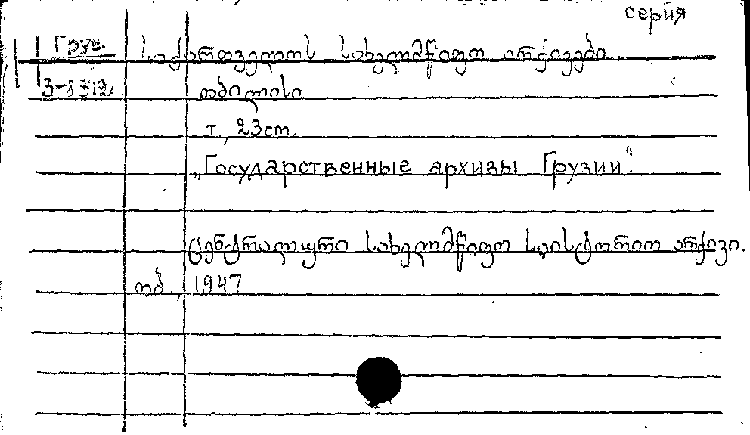 серия
Груз. საქართველოს სახელმწიფო არქივები
3-8712 თბილისი
т., 23 см.
„Государственные архивы Грузии".
ცენტრალური სახელმწიფო საისტორიო არქივი.
თბ., 1947